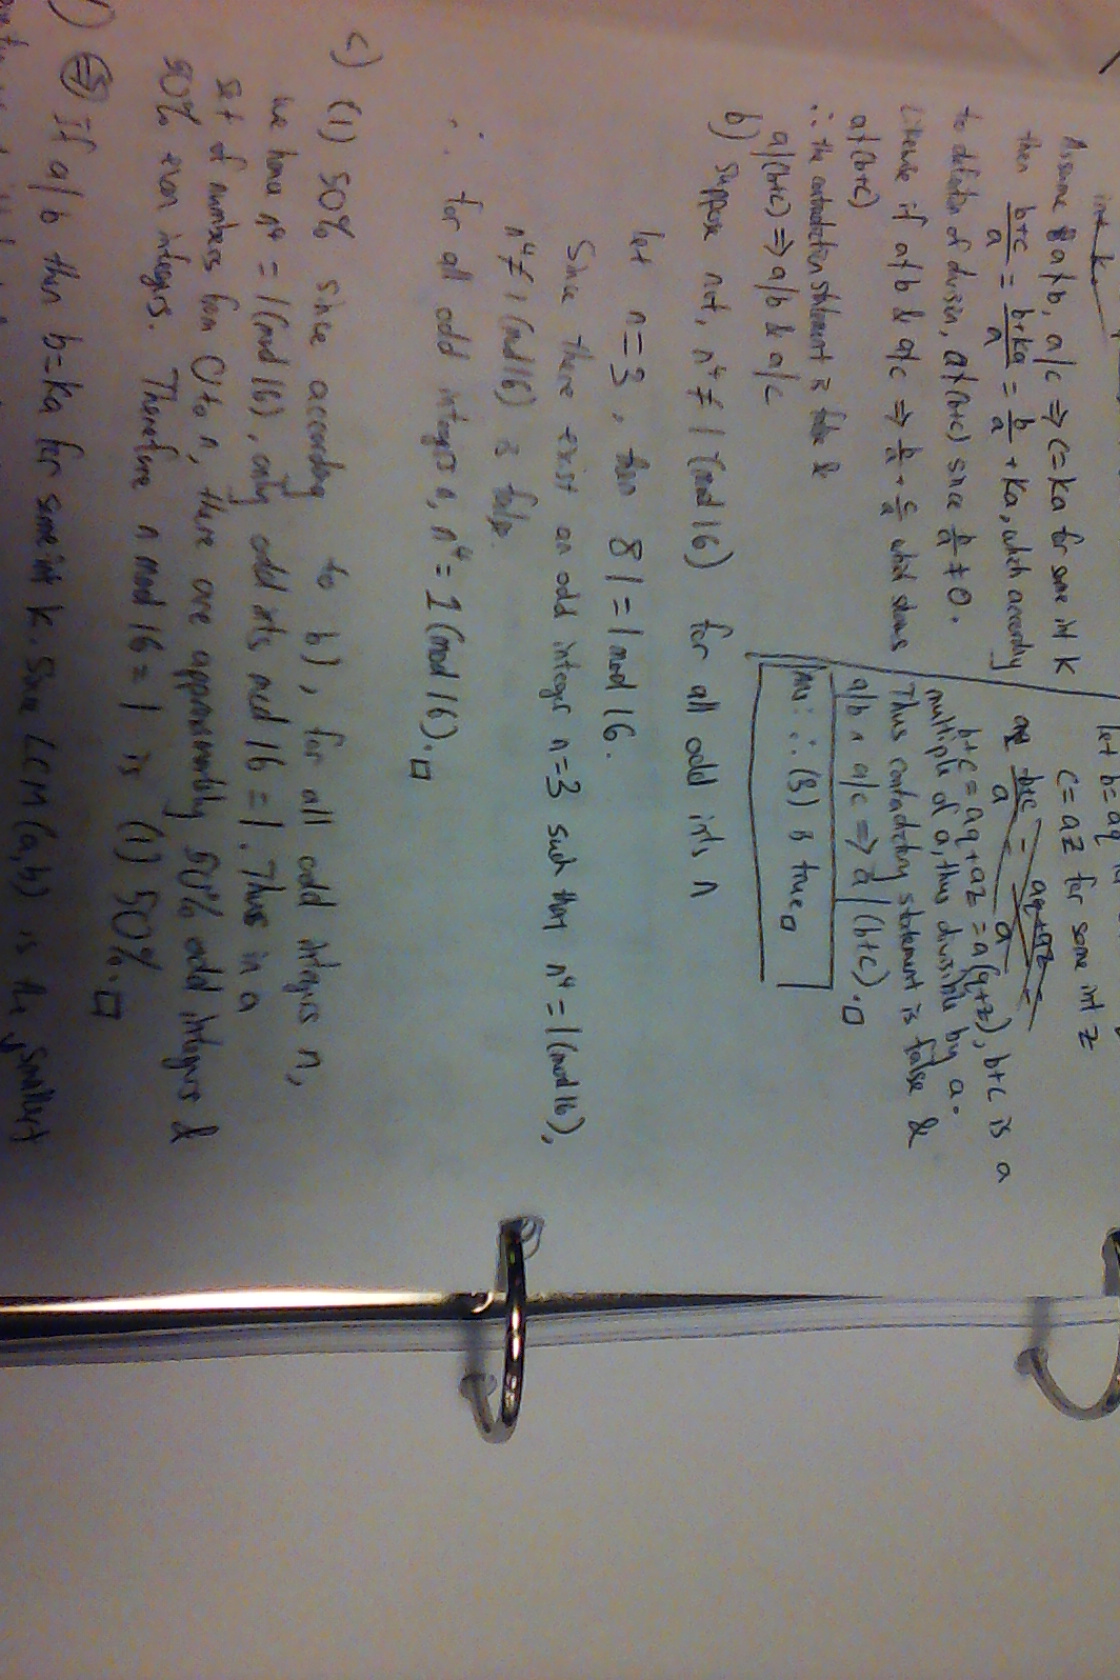 int k
Assume a∤b, a|c ⇒ c=ka for some int k
then b+c/a = b+ka/a = b/a + ka, which accordingly
to definition of division, a∤(b+c) since b/a ≠ 0.
Likewise if a∤b & a∤c ⇒ b/a + c/a which shows
a∤(b+c)
∴ the contradiction statement is false &
a|(b+c) ⇒ a|b & a|c
let b=aq
c=az for some int z
b+c/a = aq+az/a
b+c = aq+az = a(q+z), b+c is a
multiple of a, thus divisible by a.
Thus contradictory statement is false &
a|b ∧ a|c ⇒ a|(b+c).□
∴ (3) is true□
b) suppose not, n⁴ ≠ 1 (mod 16) for all odd ints n
let n=3, then 81 = 1 mod 16.
Since there exist an odd integer n=3 such that n⁴ = 1 (mod 16),
n⁴ ≠ 1 (mod 16) is false.
∴ for all odd integers n, n⁴ = 1 (mod 16).□
c) (1) 50% since according to b), for all odd integers n,
we have n⁴ = 1 (mod 16), only odd ints mod 16 = 1. Thus in a
set of numbers from 0 to n, there are approximately 50% odd integers &
50% even integers. Therefore n mod 16 = 1 is (1) 50%.□
) ⇒ If a|b then b=ka for some int k. Since LCM(a,b) is the smallest